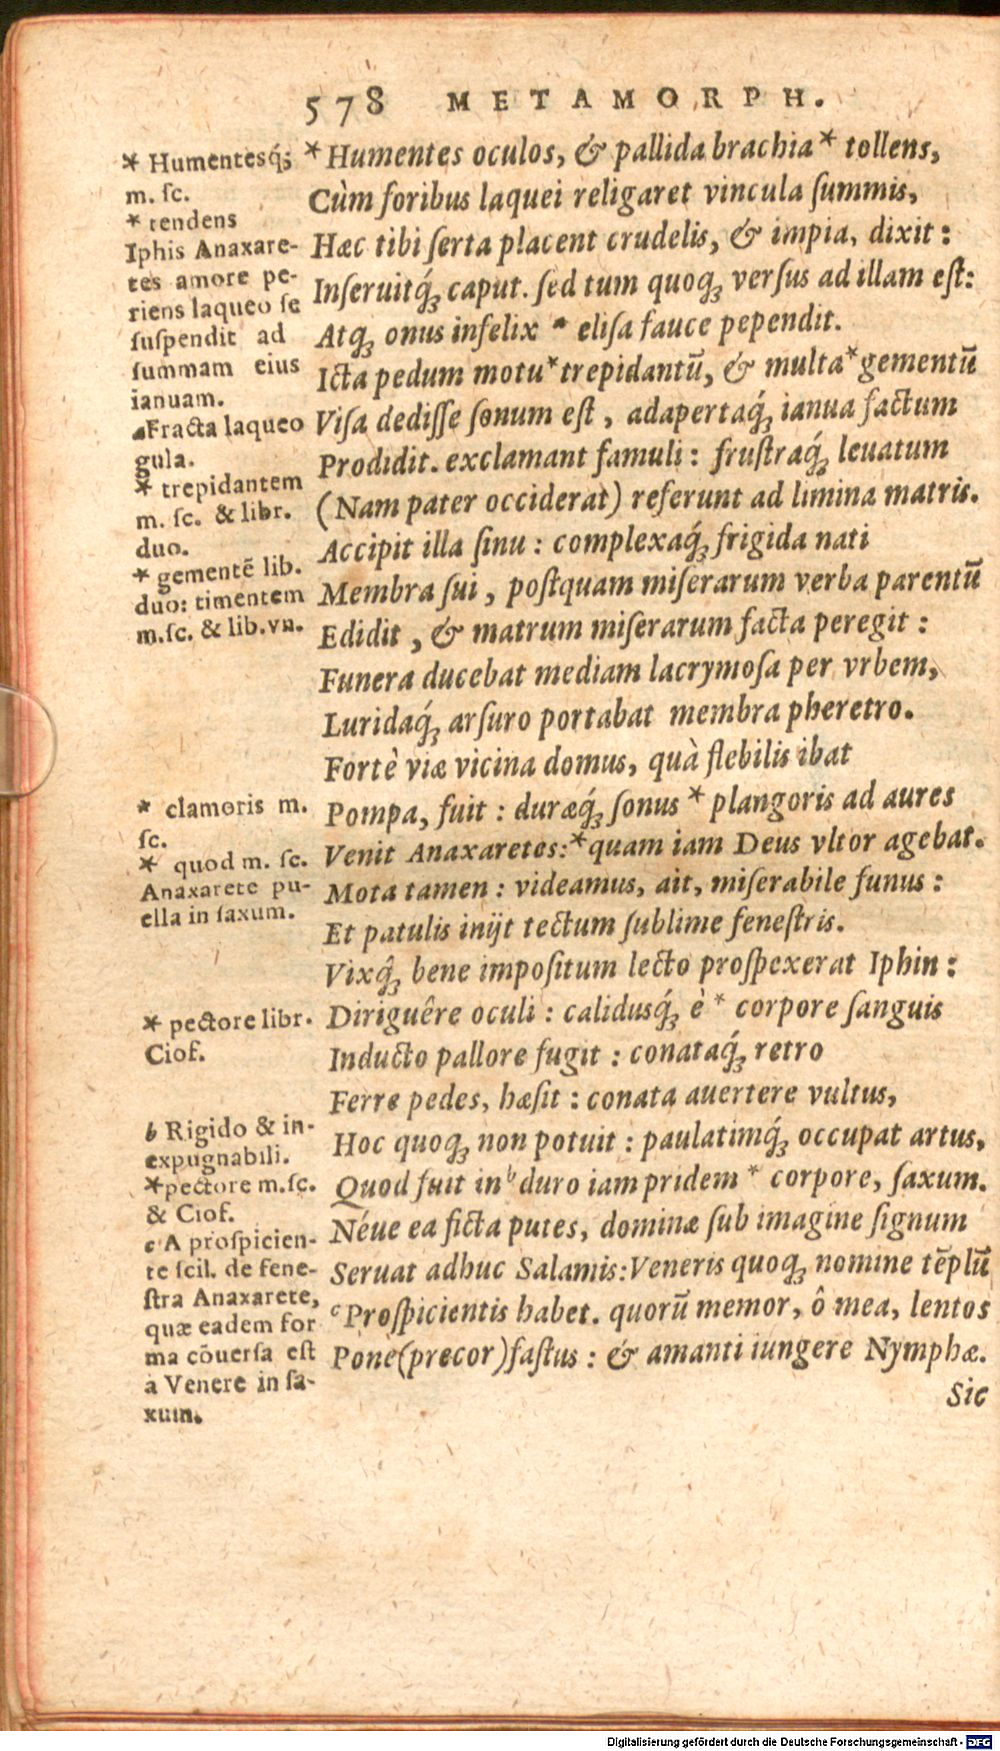 578 METAMORPH.
* Humentes oculos, & pallida brachia * tollens,
Cùm foribus laquei religaret vincula ſummis,
Hæc tibi ſerta placent crudelis, & impia, dixit:
Inſeruitq́; caput. ſed tum quoq; verſus ad illam eſt:
Atq; onus infelix a eliſa fauce pependit.
Icta pedum motu * trepidantū, & multa * gementū
Viſa dediſſe ſonum eſt, adapertaq́; ianua factum
Prodidit. exclamant famuli: fruſtraq́; leuatum
(Nam pater occiderat) referunt ad limina matris.
Accipit illa ſinu: complexaq́; frigida nati
Membra ſui, poſtquam miſerarum verba parentū
Edidit, & matrum miſerarum facta peregit:
Funera ducebat mediam lacrymoſa per vrbem,
Luridaq́; arſuro portabat membra pheretro.
Fortè viæ vicina domus, quà flebilis ibat
Pompa, fuit: duræq́; ſonus * plangoris ad aures
Venit Anaxaretes: * quam iam Deus vltor agebat.
Mota tamen: videamus, ait, miſerabile funus:
Et patulis inijt tectum ſublime feneſtris.
Vixq̃; bene impoſitum lecto proſpexerat Iphin:
Diriguêre oculi: calidusq́; è * corpore ſanguis
Inducto pallore fugit: conataq́; retro
Ferre pedes, hæſit: conata auertere vultus,
Hoc quoq; non potuit: paulatimq́; occupat artus,
Quod fuit in b duro iam pridem * corpore, ſaxum.
Néue ea ficta putes, dominæ ſub imagine ſignum
Seruat adhuc Salamis: Veneris quoq; nomine tēplū
c Proſpicientis habet. quorū memor, ô mea, lentos
Pone (precor) faſtus: & amanti iungere Nymphæ.
Sic
* Humentesq́;
m. ſc.
* tendens
Iphis Anaxare-
tes amore pe-
riens laqueo ſe
ſuſpendit ad
ſummam eius
ianuam.
a Fracta laqueo
gula.
* trepidantem
m. ſc. & libr.
duo.
* gementē lib.
duo: timentem
m.ſc. & lib.vn.
* clamoris m.
ſc.
* quod m. ſc.
Anaxarete pu-
ella in ſaxum.
* pectore libr.
Ciof.
b Rigido & in-
expugnabili.
* pectore m.ſc.
& Ciof.
c A proſpicien-
te ſcil. de fene-
ſtra Anaxarete,
quæ eadem for
ma cōuerſa eſt
à Venere in ſa-
xum.
Digitalisierung gefördert durch die Deutsche Forschungsgemeinschaft - DFG